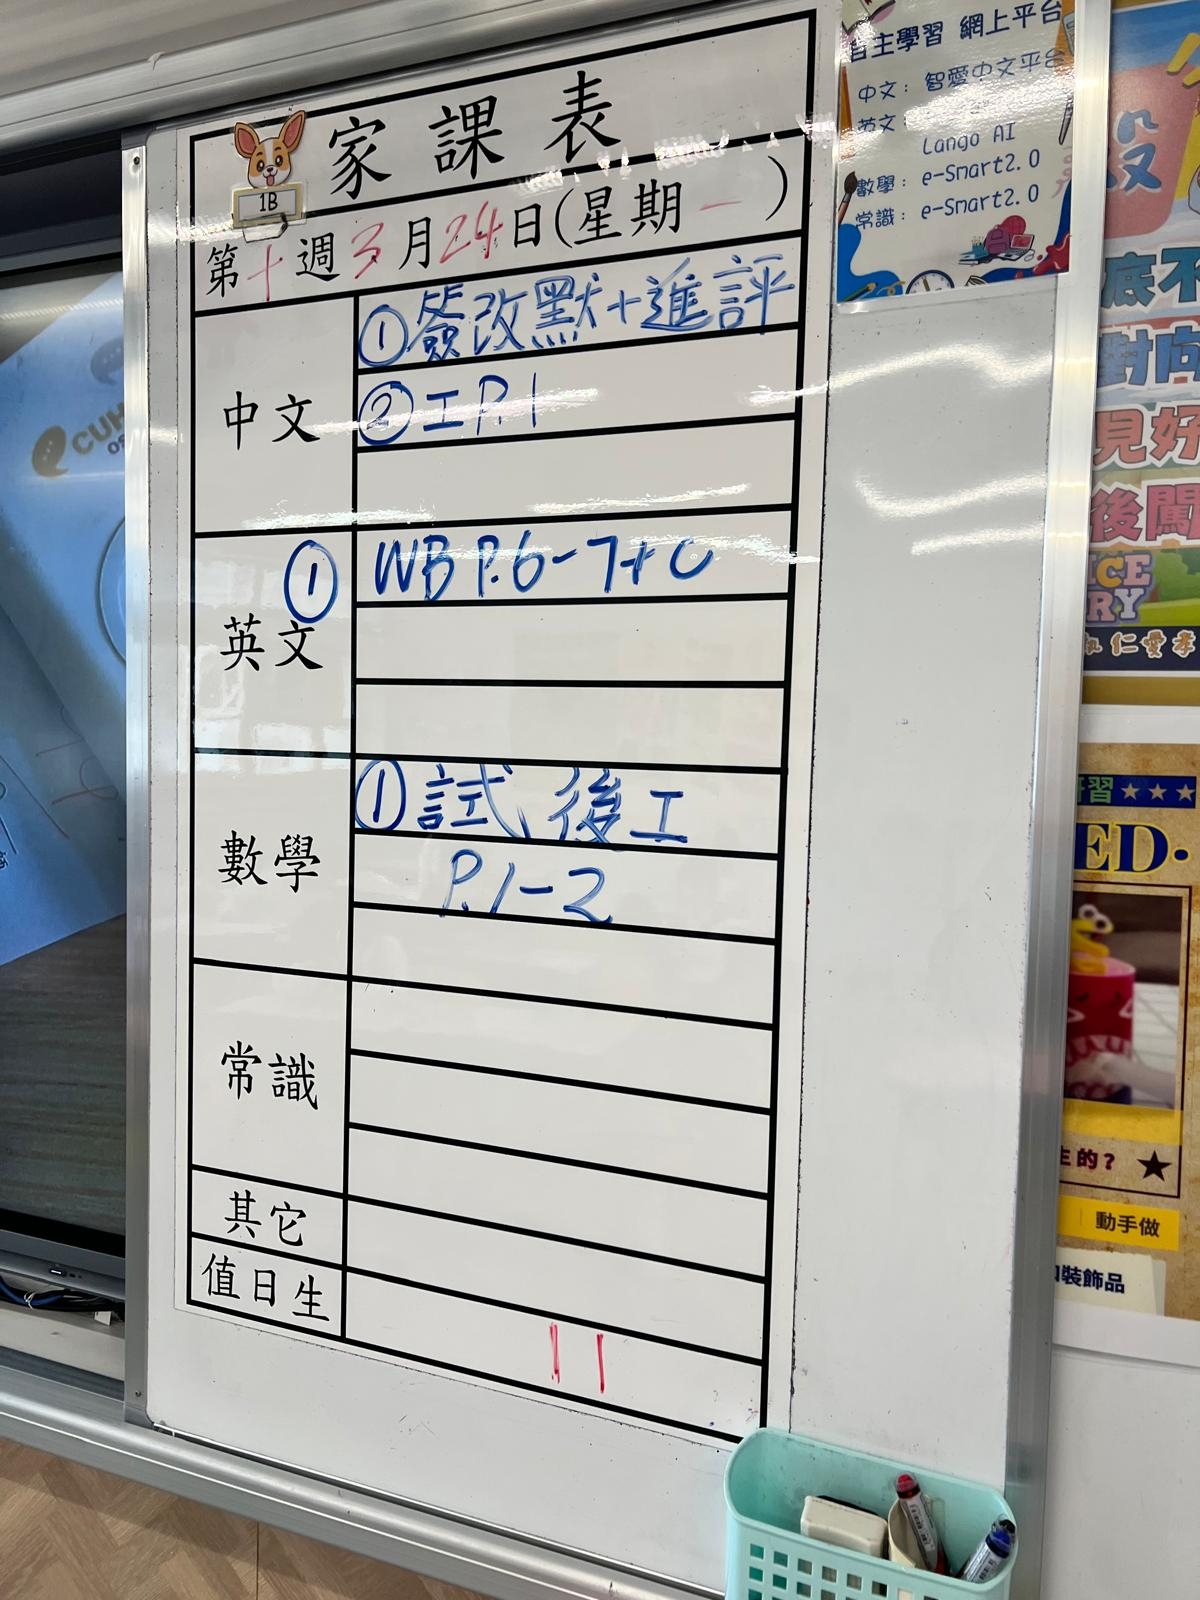 家課表
1B
第十週3月24日(星期一)
中文
①簽改默+進評
②工P.1
英文
① WB P.6-7+C
數學
①試後工
P.1-2
常識
其它
值日生
11
自主學習 網上平台
中文: 智愛中文平台
英文:
Lango AI
數學: e-Smart2.0
常識: e-Smart2.0
底不
對向
見好
後闖
仁愛孝
習★★★
ED.
生的?★
動手做
裝飾品